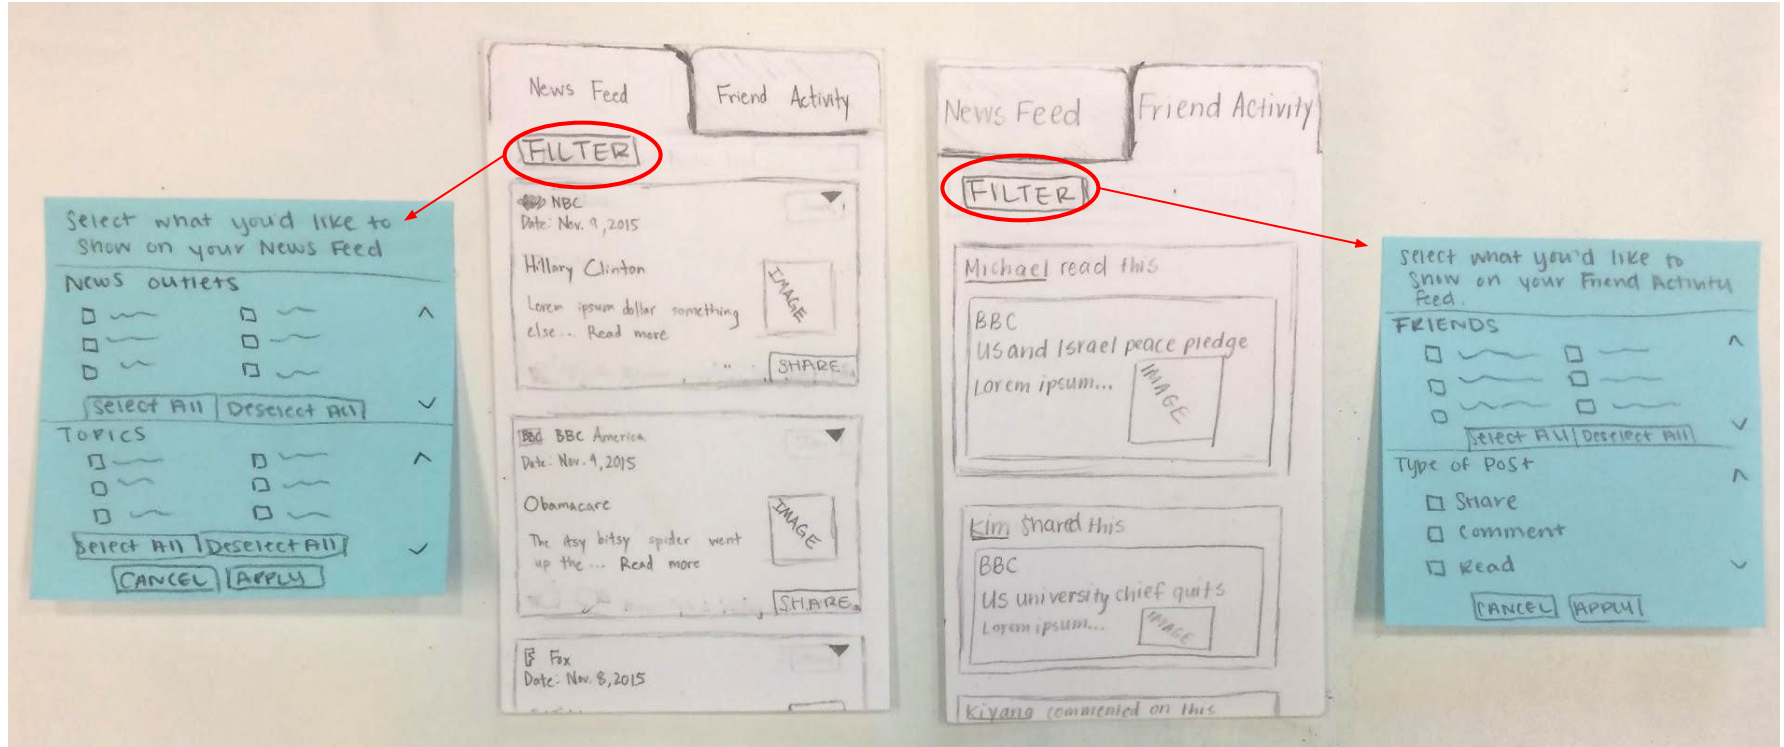 Select what you'd like to
show on your News Feed
News outlets
Select All Deselect All
TOPICS
Select All Deselect All
CANCEL APPLY
News Feed
Friend Activity
FILTER
NBC
Date: Nov. 9, 2015
Hillary Clinton
Lorem ipsum dollar something
else... Read more
IMAGE
SHARE
BBC BBC America
Date: Nov. 9, 2015
Obamacare
The itsy bitsy spider went
up the ... Read more
IMAGE
SHARE
Fox
Date: Nov. 8, 2015
News Feed
Friend Activity
FILTER
Michael read this
BBC
US and Israel peace pledge
Lorem ipsum...
IMAGE
Kim shared this
BBC
US university chief quits
Lorem ipsum...
IMAGE
Kiyana commented on this
Select what you'd like to
show on your Friend Activity
Feed.
FRIENDS
Select All Deselect All
Type of Post
Share
Comment
Read
CANCEL APPLY